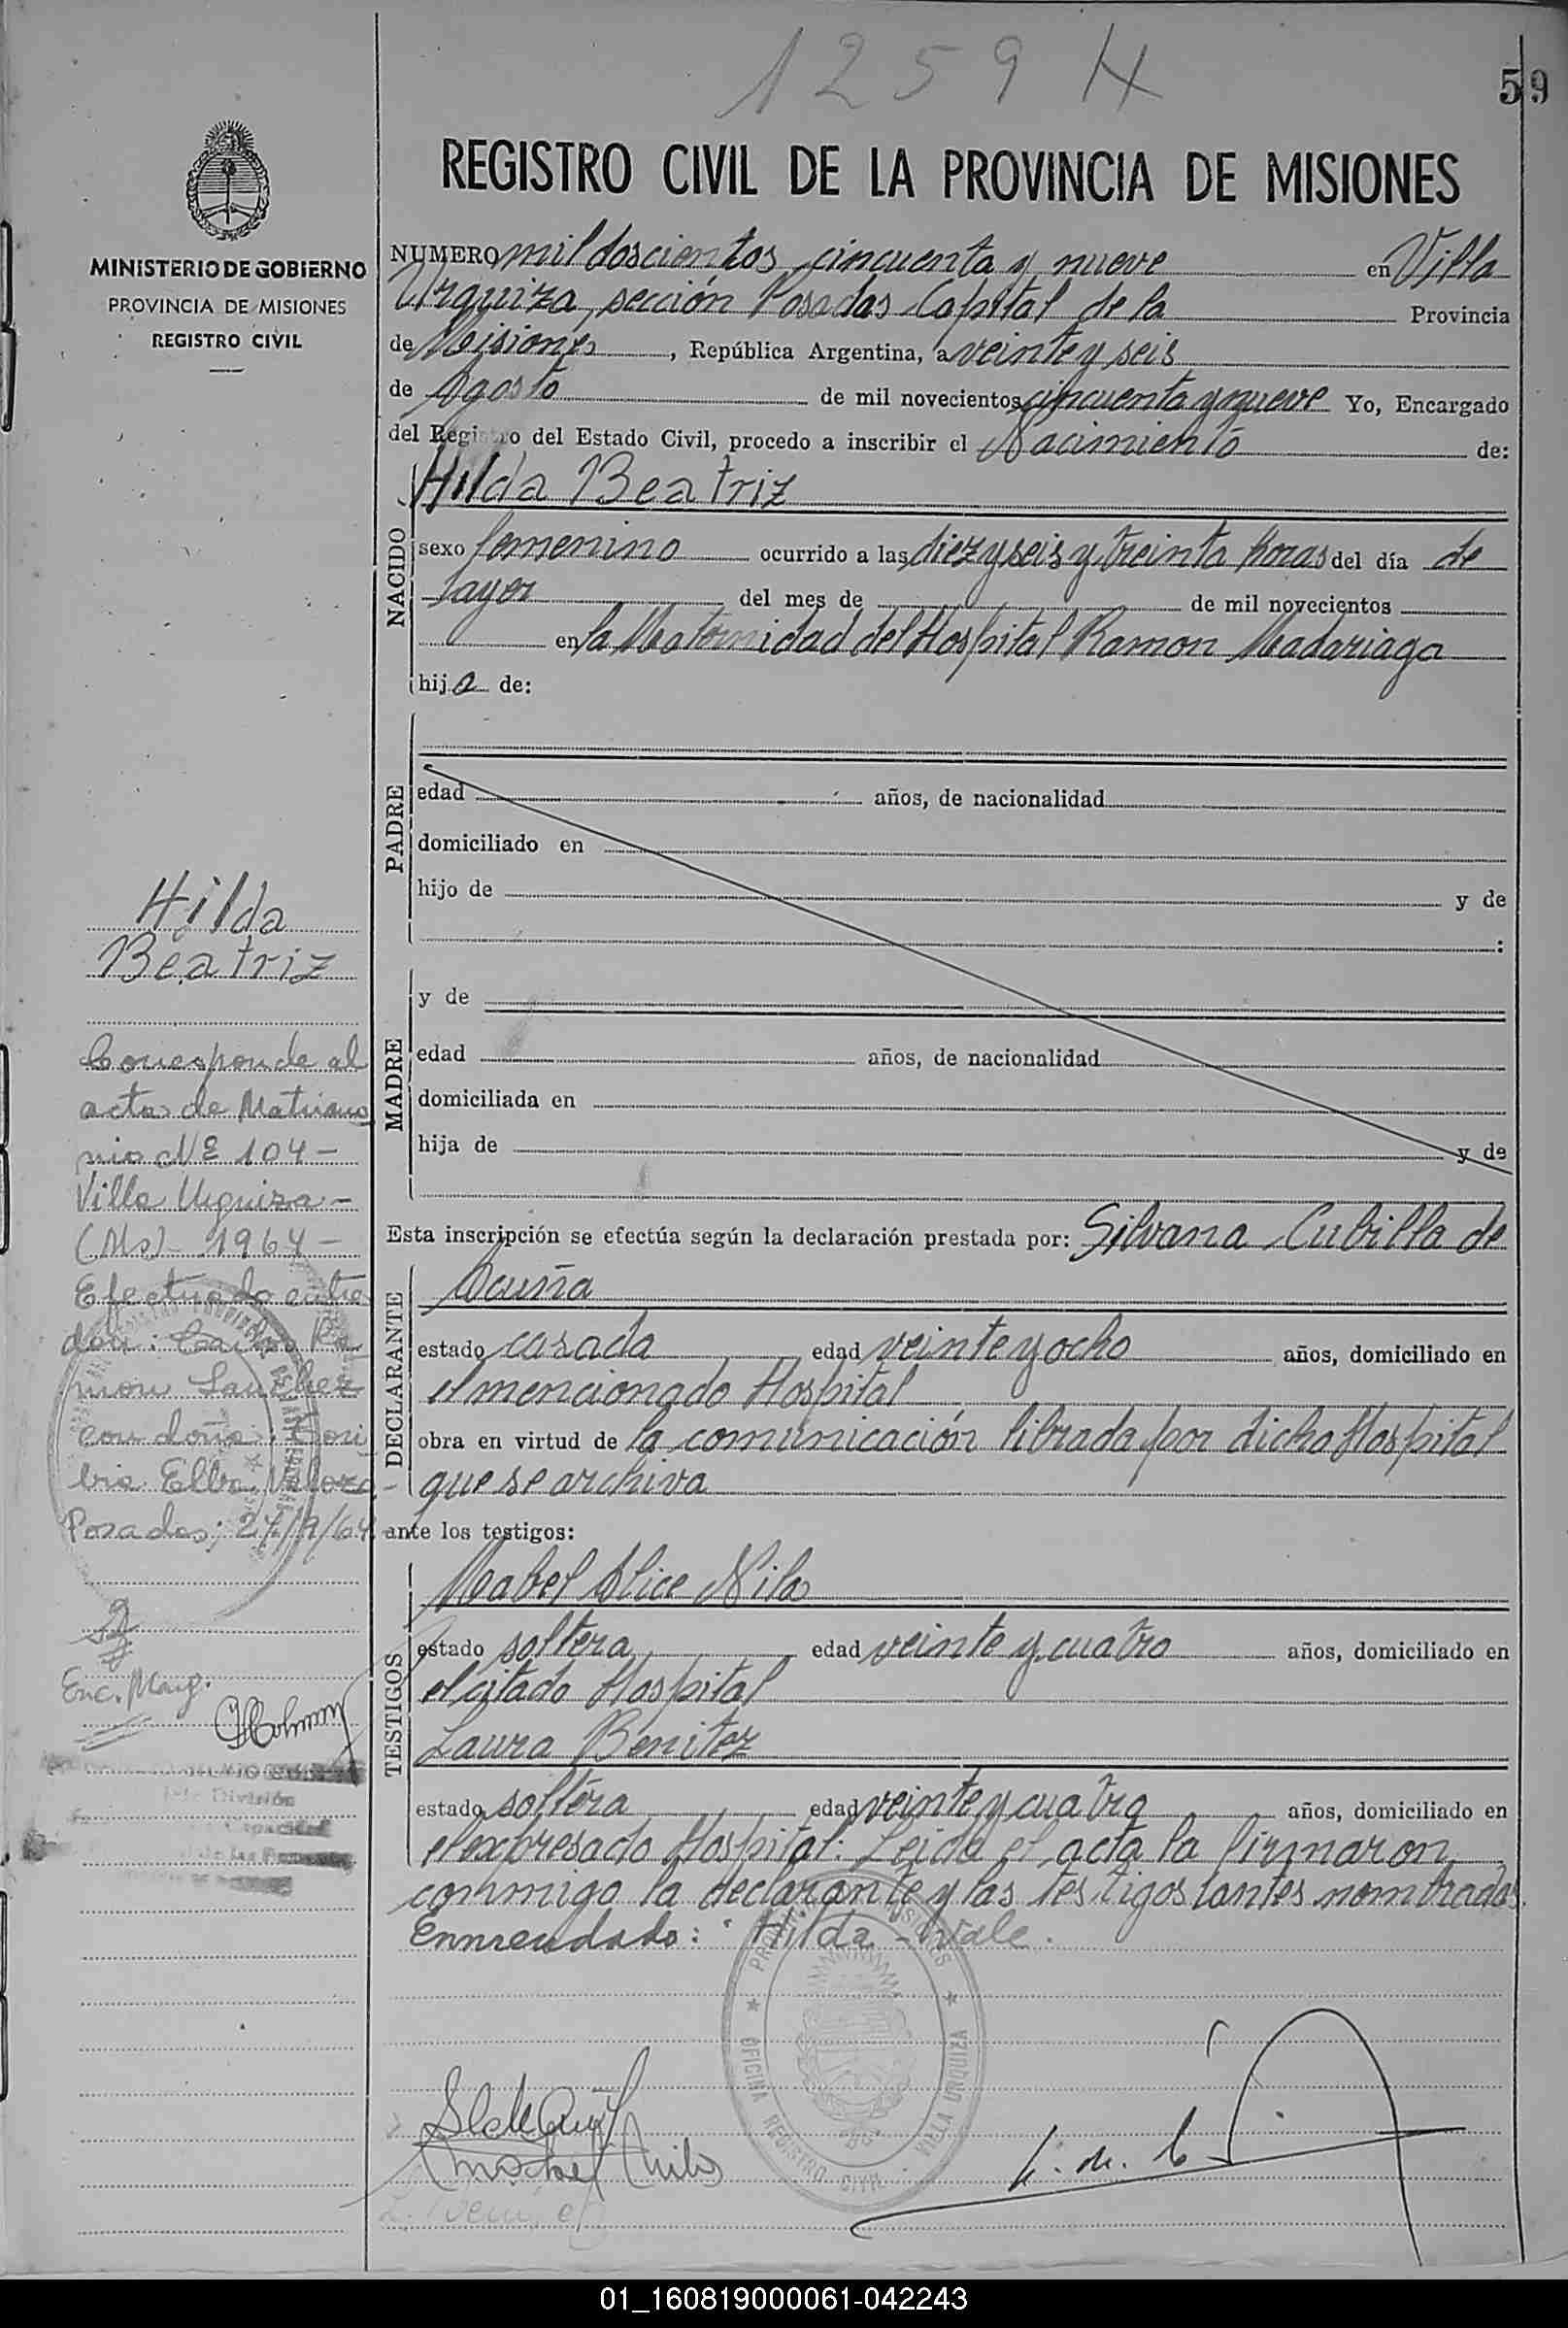 1259 H
59
REGISTRO CIVIL DE LA PROVINCIA DE MISIONES
MINISTERIO DE GOBIERNO
PROVINCIA DE MISIONES
REGISTRO CIVIL
NUMERO mil doscientos cincuenta y nueve en Villa
Urquiza, sección Posadas Capital de la Provincia
de Misiones, República Argentina, a veinte y seis
de Agosto de mil novecientos cincuenta y nueve Yo, Encargado
del Registro del Estado Civil, procedo a inscribir el Nacimiento de:
Hilda Beatriz
NACIDO
sexo femenino ocurrido a las diez y seis y treinta horas del día de
ayer del mes de de mil novecientos
en la Maternidad del Hospital Ramon Madariaga
hija de:
PADRE
edad años, de nacionalidad
domiciliado en
hijo de y de
:
MADRE
y de
edad años, de nacionalidad
domiciliada en
hija de y de
Esta inscripción se efectúa según la declaración prestada por: Silvana Cubilla de
Acuña
DECLARANTE
estado casada edad veinte y ocho años, domiciliado en
el mencionado Hospital
obra en virtud de la comunicación librada por dicho Hospital
que se archiva
ante los testigos:
TESTIGOS
Mabel Alice Nila
estado soltera edad veinte y cuatro años, domiciliado en
el citado Hospital
Laura Benitez
estado soltera edad veinte y cuatro años, domiciliado en
el expresado Hospital. Leida el acta la firmaron
conmigo la declarante y las testigos antes nombradas.
Enmendado: "Hilda - Vale.
Hilda
Beatriz
Corresponde al
acta de Matrimo
nio Nº 104 -
Villa Urquiza -
(Ms) 1964 -
Efectuado entre
don: Carlos Ra
mon Sanchez
con doña: Tori
bia Elba
Posadas; 27/9/64
Enc. Marg.
División
OFICINA REGISTRO CIVIL VILLA URQUIZA
01_160819000061-042243